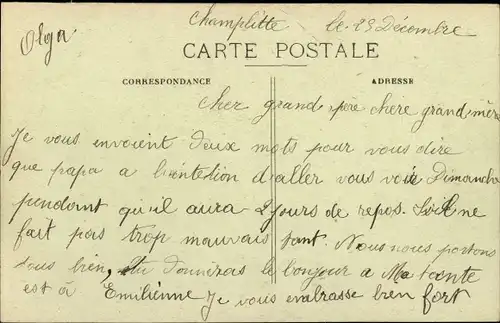 Olga
Champlitte le 29 Décembre
CARTE POSTALE
CORRESPONDANCE
ADRESSE
Cher grand père chère grand mère
Je vous envoient deux mots pour vous dire
que papa a l'intention d'aller vous voir Dimanche
pendant qu'il aura 2 jours de repos. S'il ne
fait pas trop mauvais tant. Nous nous portons
tous bien, tu donneras le bonjour a Ma tante
est à Emilienne Je vous embrasse bien fort